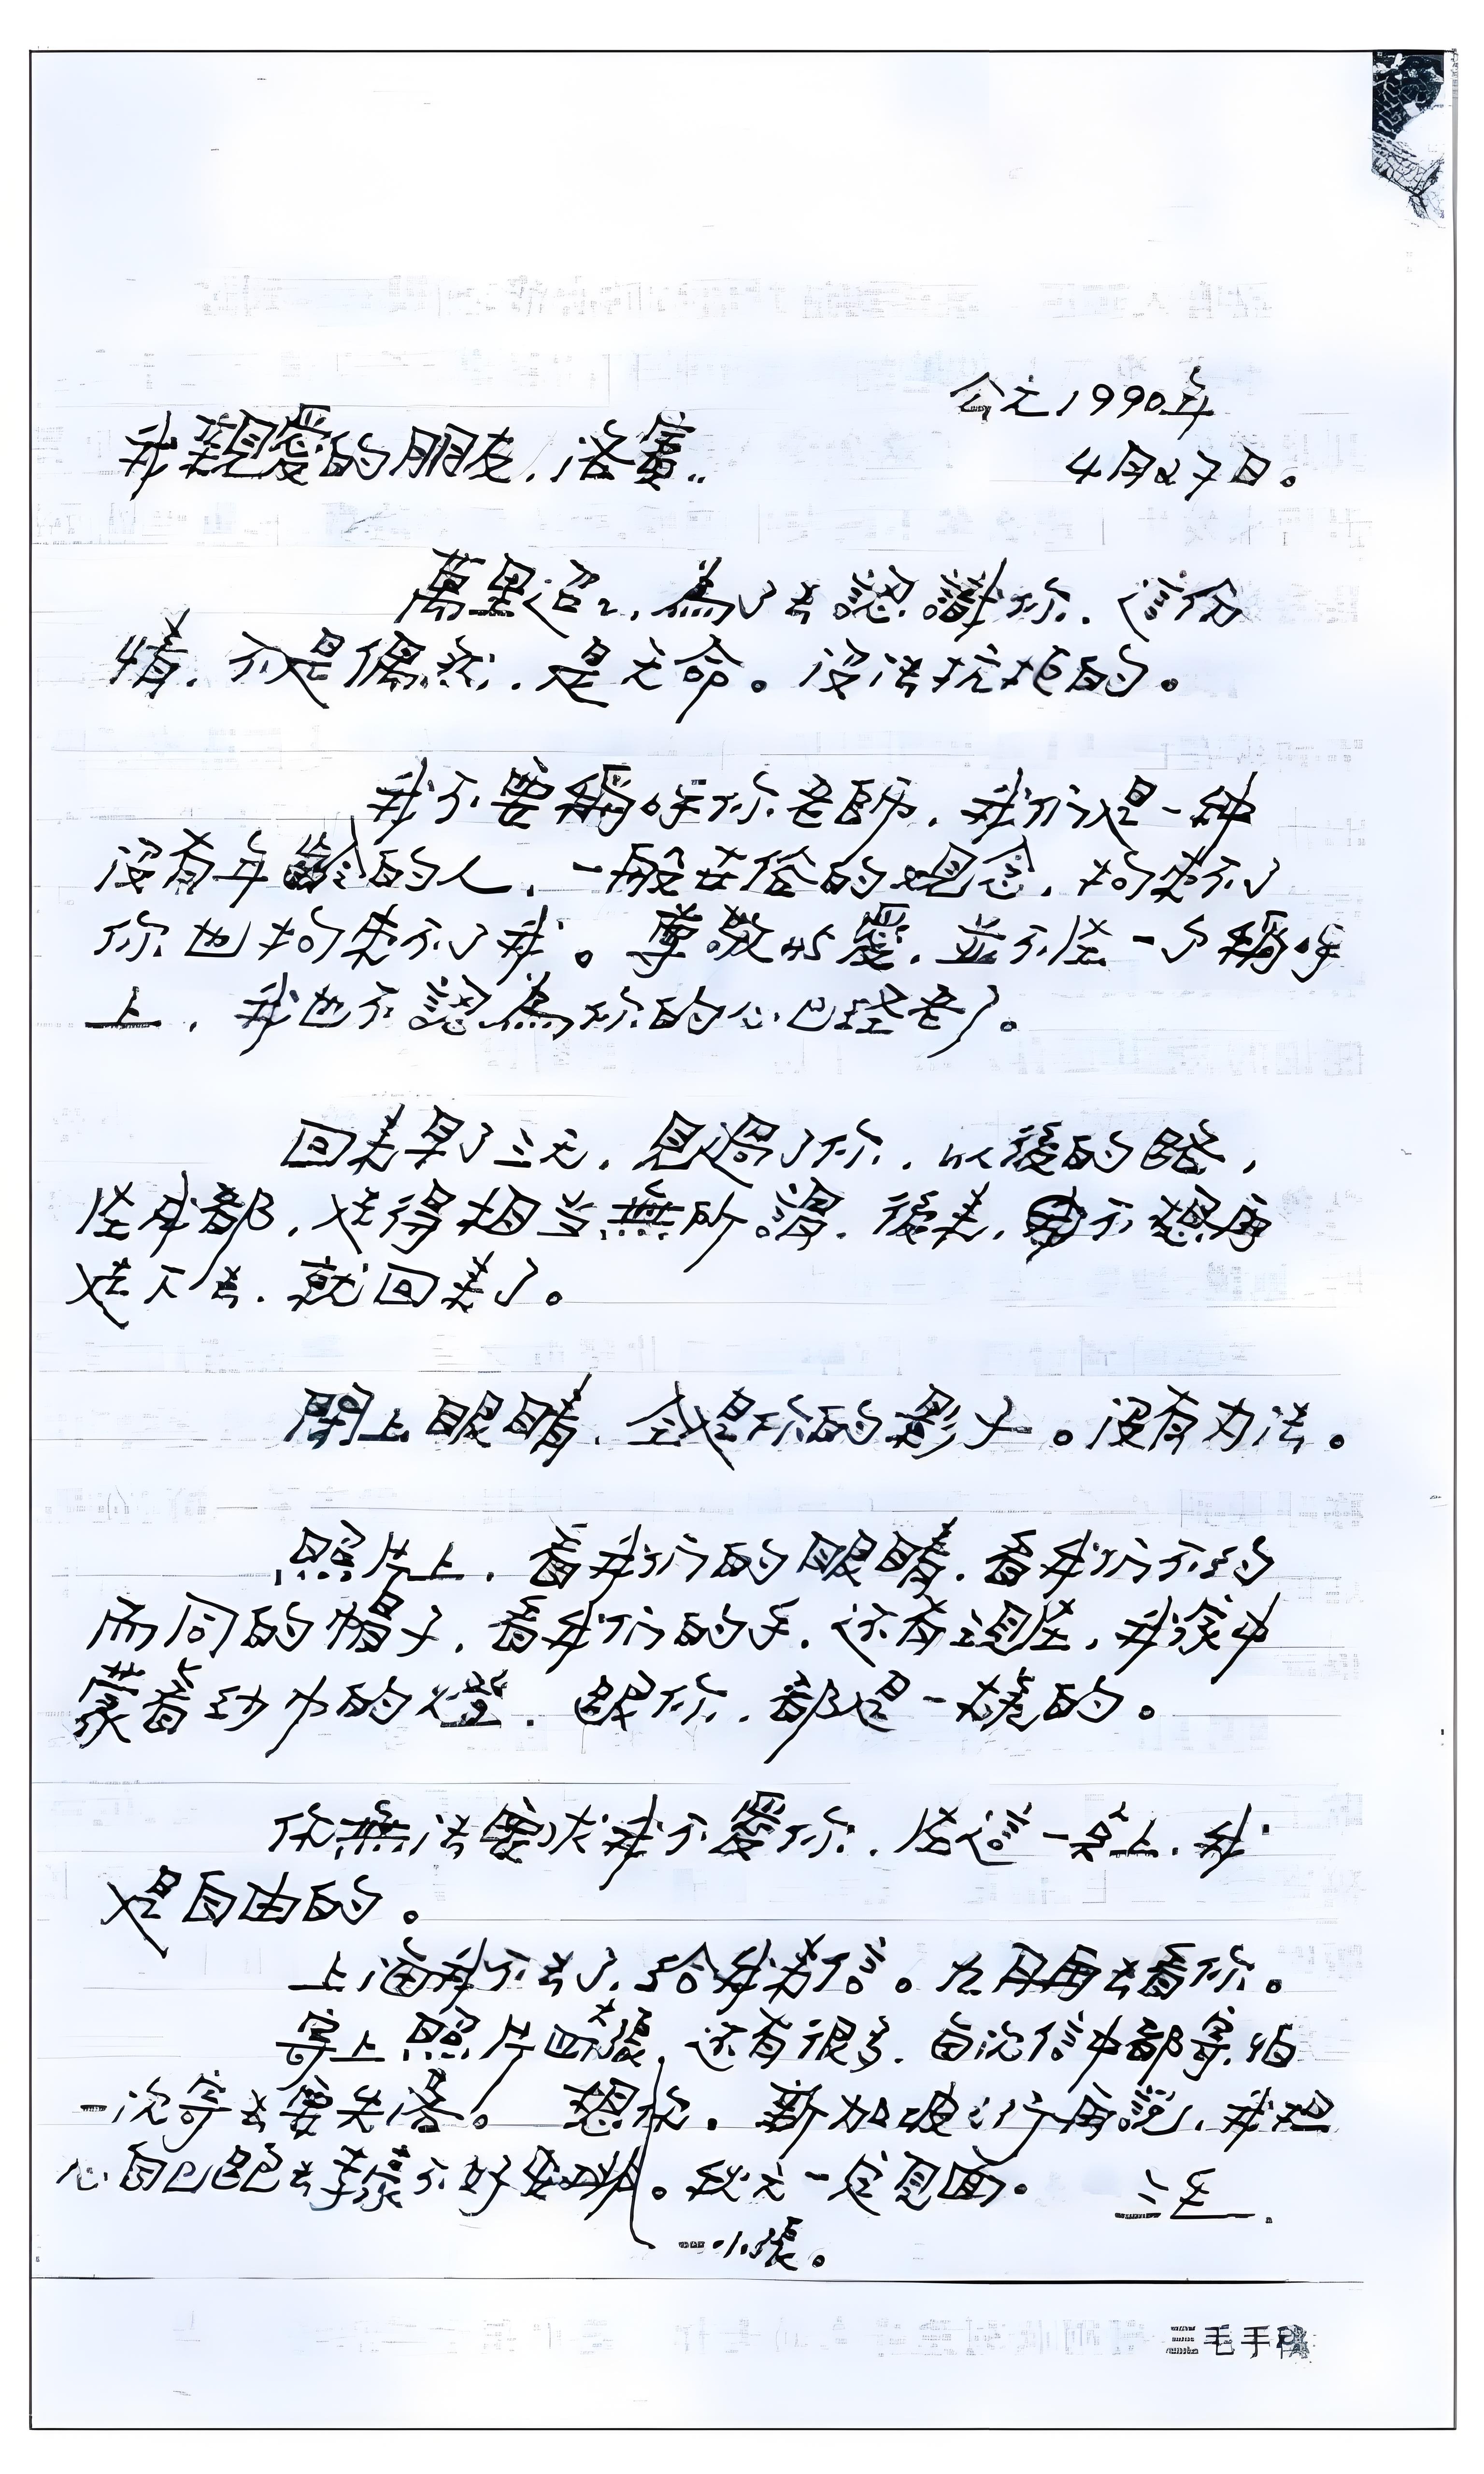 公元1990年
我親愛的朋友,洛賓:
4月27日。
萬里迢迢,為了去認識你,這份
情,不是偶然,是天命。沒法抗拒的。
我不要稱呼你老師,我們是一種
沒有年齡的人,一般世俗的觀念,拘束不了
你也拘束不了我。尊敬與愛,並不在一個稱呼
上,我也不認為你的心已經老了。
回來早了三天,見過了你,以後的路,
在成都,走得相當無所謂,後來,不想再
走下去,就回來了。
閉上眼睛,全是你的影子。沒有办法。
照片上,看我們的眼睛,看我們不約
而同的帽子,看我們的手,还有這在,我家中
蒙着纱巾的燈,跟你,都是一樣的。
你無法要求我不愛你,在這一點上,我
是自由的。
上海我不去了,給我来信。九月再去看你。
寄上照片四大張,还有很多,每次信中都寄,怕
一次寄去要失落。想你,新加坡之行再說,我担
心自己跑去樣不好安排。秋天一定見面。
三毛.
一小張。
三毛手稿